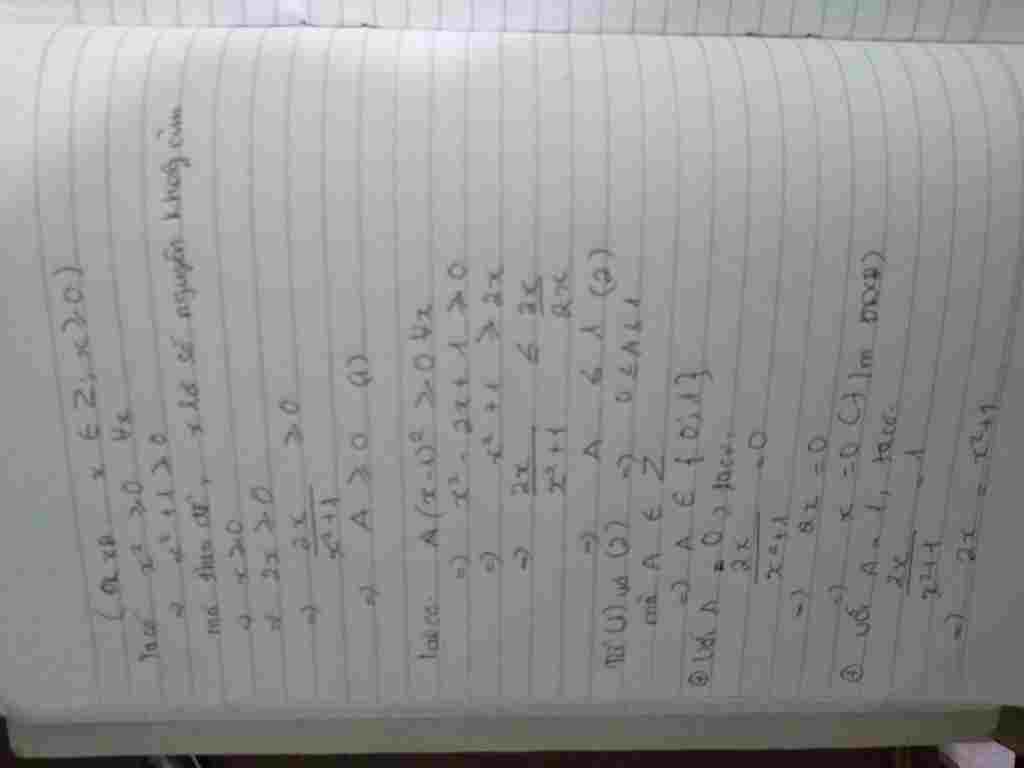 (ĐKXĐ x ∈ Z; x ≥ 0)
Ta có x² ≥ 0 ∀x
⇒ x² + 1 > 0
mà theo đề, x là số nguyên không âm
⇒ x ≥ 0
⇒ 2x ≥ 0
⇒ 2x/(x²+1) ≥ 0
⇒ A ≥ 0 (1)
Ta có (x-1)² ≥ 0 ∀x
⇒ x² - 2x + 1 ≥ 0
⇒ x² + 1 ≥ 2x
⇒ 2x/(x²+1) ≤ 2x/2x
⇒ A ≤ 1 (2)
Từ (1) và (2) ⇒ 0 ≤ A ≤ 1
mà A ∈ Z
⇒ A ∈ {0,1}
⊕ Với A = 0, ta có:
2x/(x²+1) = 0
⇒ 2x = 0
⇒ x = 0 (tm ĐKXĐ)
⊕ Với A = 1, ta có:
2x/(x²+1) = 1
⇒ 2x = x²+1